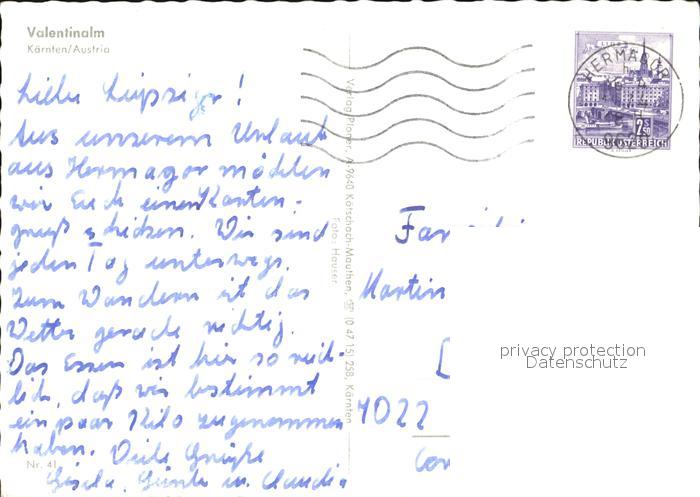 Valentinalm
Kärnten/Austria
Liebe Leipziger!
Aus unserem Urlaub
aus Hermagor möchten
wir Euch einen Karten-
gruß schicken. Wir sind
jeden Tag unterwegs.
Zum Wandern ist das
Wetter gerade richtig.
Das Essen ist hier so reich-
lich, daß wir bestimmt
ein paar Kilo zugenommen
haben. Viele Grüße
Gisela, Günter u. Claudia
Nr. 41
Verlag A 9640 Kötschach-Mauthen, (0 47 15) 258, Kärnten
Foto: Hauser
HERMAGOR
2S50
REPUBLIK ÖSTERREICH
Fam
Martin
7022
privacy protection
Datenschutz